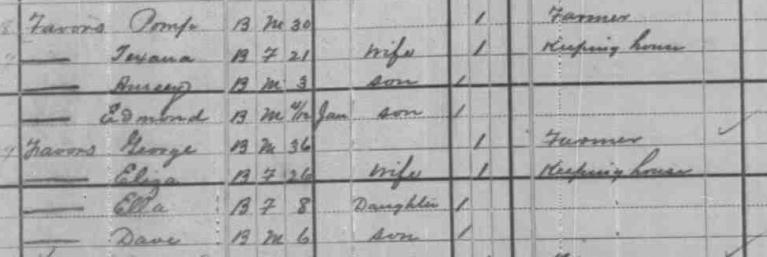 Favors Pomp B M 30 1 Farmer
— Texana B F 21 Wife 1 Keeping house
— B M 3 son 1
— Edmond B M 4/12 Jan son 1
Favors George B M 36 1 Farmer
— Eliza B F 26 Wife 1 Keeping house
— Ella B F 8 Daughter 1
— Dave B M 6 son 1